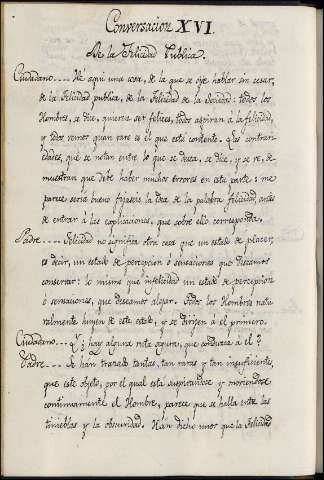 Conversacion XVI.
De la Felicidad Publica.
Ciudadano.... He aqui una cosa, de la que se oye hablar sin cesar,
de la Felicidad publica, de la Felicidad de la Sociedad: todos los
Hombres, se dice, quieren ser felices, todos aspiran à la felicidad,
y todos vemos quan raro es el que està contento. Las contrarie-
dades, que se notan entre lo que se desea, se dice, y se ve, de-
muestran que debe haber muchos errores en esta parte: me
parece seria bueno fijaseis la idea de la palabra felicidad, antes
de entrar à las explicaciones, que sobre ello corresponda.
Padre.... Felicidad no significa otra cosa que un estado de placer,
es decir, un estado de percepcion ò sensaciones que deseamos
conservar: lo mismo que infelicidad un estado de percepciones
ò sensaciones, que deseamos alejar. Todos los Hombres natu-
ralmente huyen de este estado, y se dirijen à el primero.
Ciudadano.... Y ¿hay alguna ruta segura, que conduzca à el?
Padre.... Se han trazado tantas, tan raras y tan insuficientes,
que este objeto, por el qual esta suspirando y muriendose
continuamente el Hombre, parece que se halla entre las
tinieblas y la obscuridad. Han dicho unos que la Felicidad